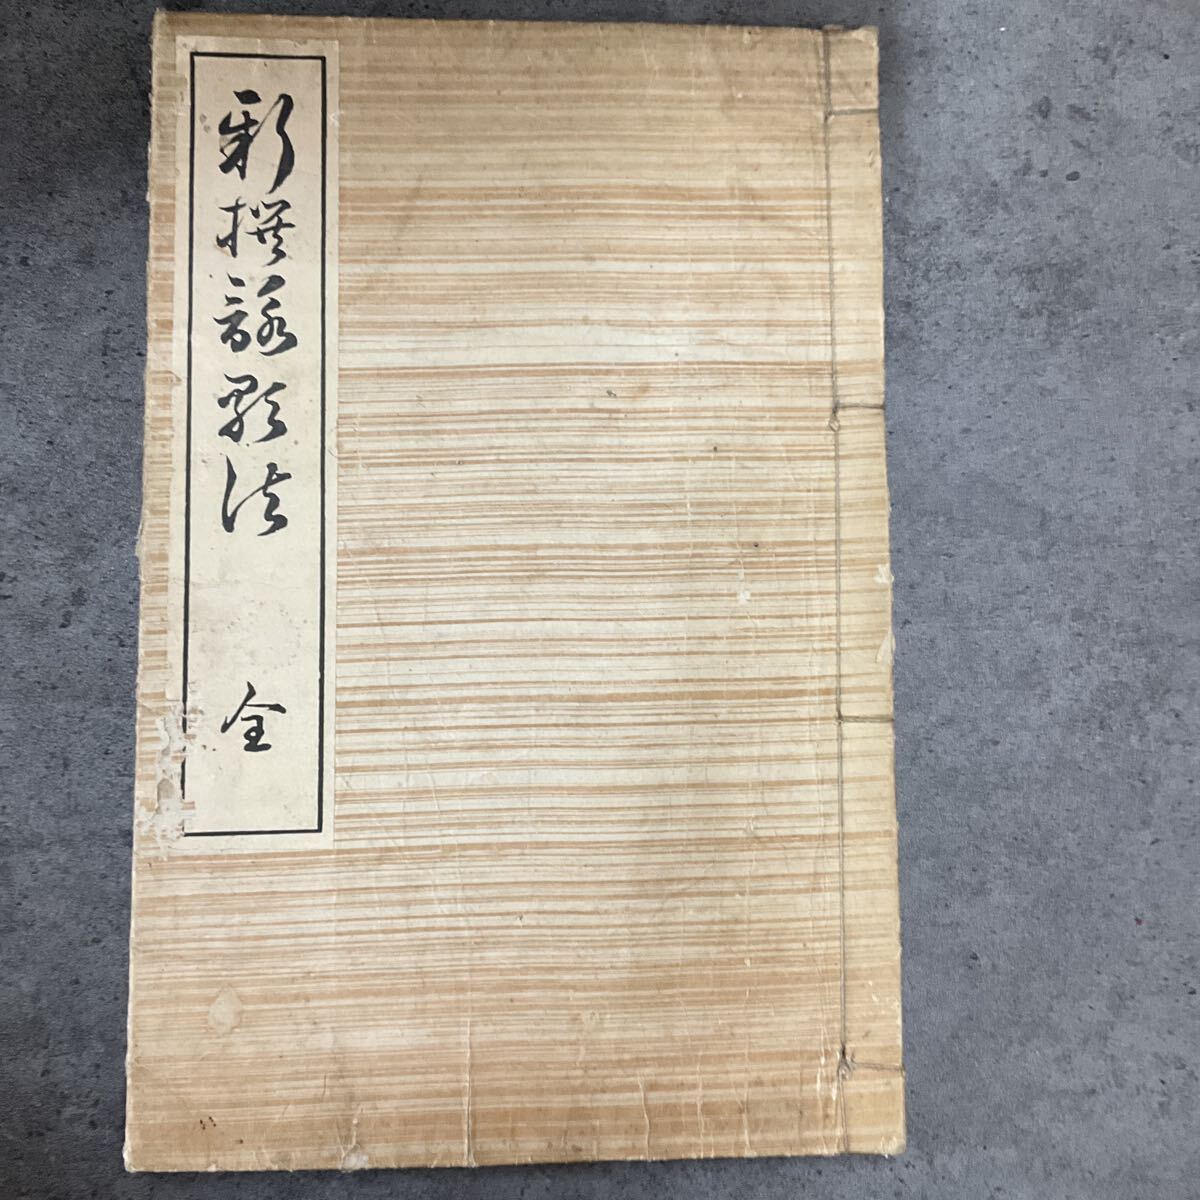 新撰詠歌法 全